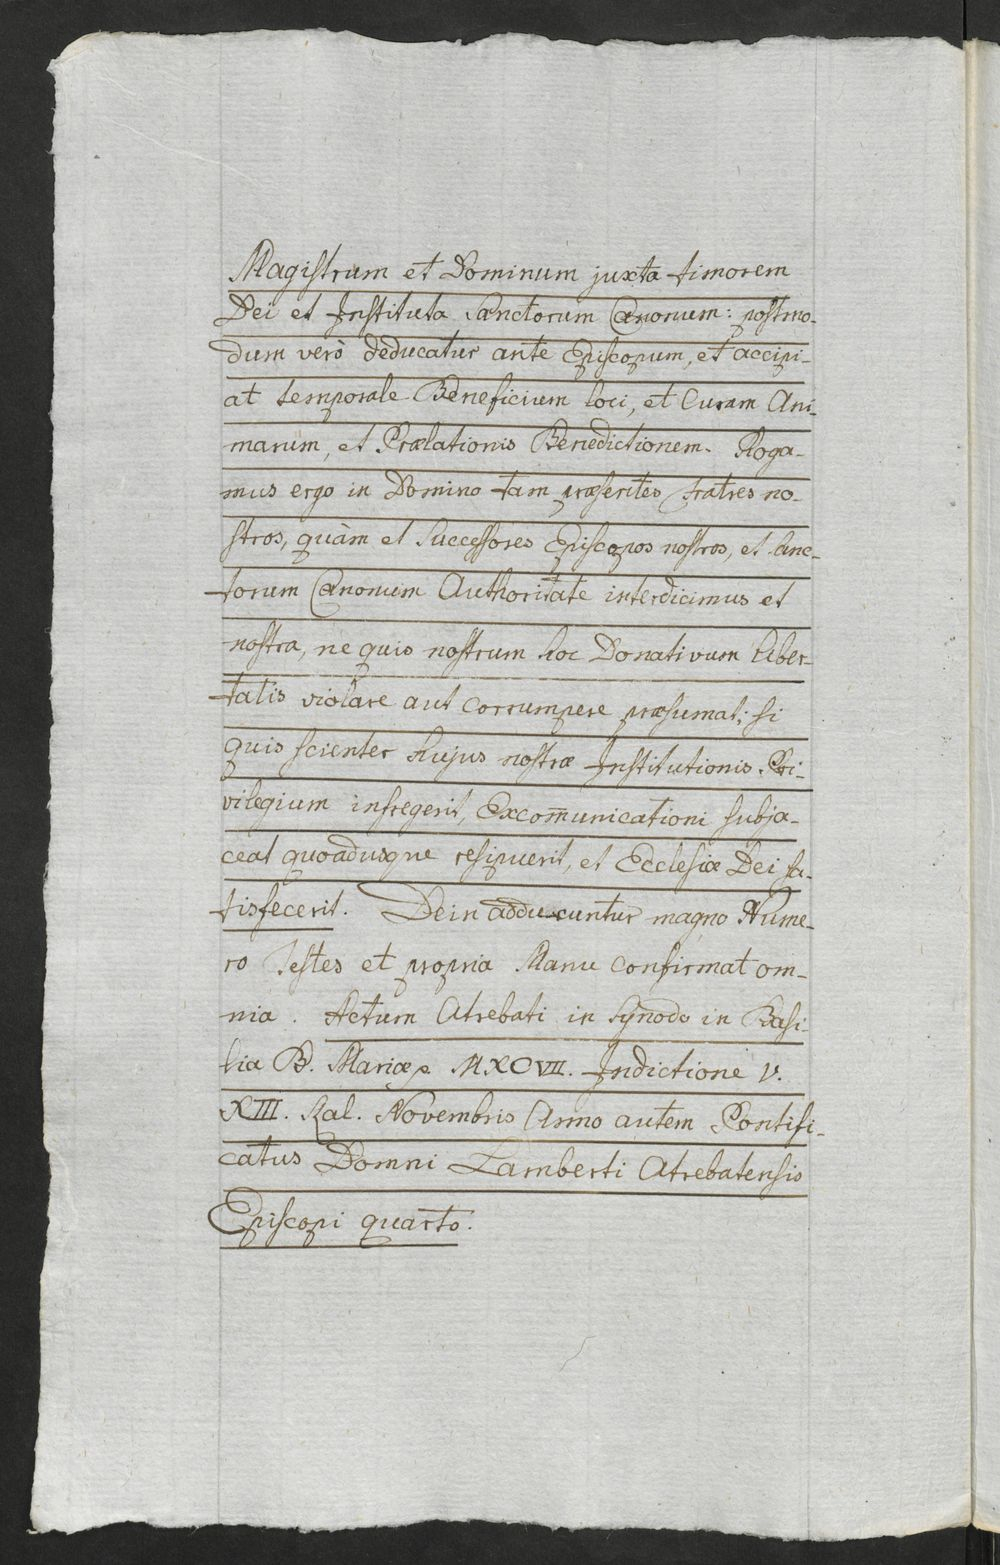 Magistrum et Dominum juxta timorem
Dei et Instituta Sanctorum Canonum: postmo-
dum verò deducatur ante Episcopum, et accipi-
at temporale Beneficium loci, et Curam Ani-
marum, et Prælationis Benedictionem. Roga-
mus ergo in Domino tam præsentes fratres no-
stros, quàm et Successores Episcopos nostros, et Sanc-
torum Canonum Authoritate interdicimus et
nostra, ne quis nostrum hoc Donativum liber-
tatis violare aut corrumpere præsumat; si
quis scienter hujus nostræ Institutionis Pri-
vilegium infregerit, Excom̄unicationi subja-
ceat quoadusque resipuerit, et Ecclesiæ Dei sa-
tisfecerit. Dein adducuntur magno Nume-
ro Testes et propria Manu confirmat om-
nia. Actum Atrebati in Synodo in Basi-
lia B. Mariæ MXCVII. Indictione V.
XIII. Kal. Novembris Anno autem Pontifi-
catus Domni Lamberti Atrebatensis
Episcopi quarto.